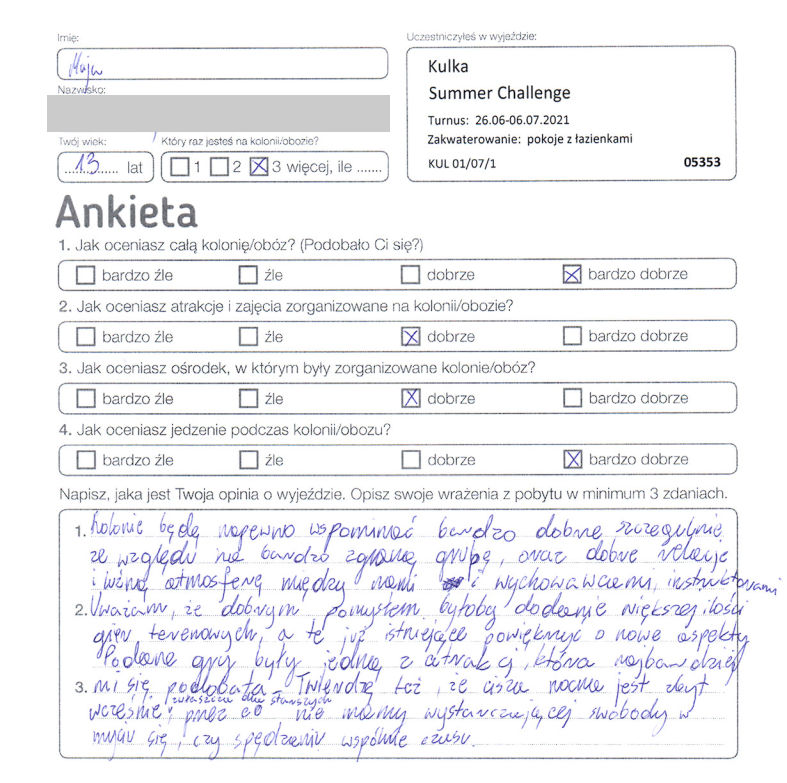 Imię:
Maja
Nazwisko:
Twój wiek:
13 lat
Który raz jesteś na kolonii/obozie?
1 2 3 więcej, ile .......
Uczestniczyłeś w wyjeździe:
Kulka
Summer Challenge
Turnus: 26.06-06.07.2021
Zakwaterowanie: pokoje z łazienkami
KUL 01/07/1 05353
Ankieta
1. Jak oceniasz całą kolonię/obóz? (Podobało Ci się?)
bardzo źle źle dobrze bardzo dobrze
2. Jak oceniasz atrakcje i zajęcia zorganizowane na kolonii/obozie?
bardzo źle źle dobrze bardzo dobrze
3. Jak oceniasz ośrodek, w którym były zorganizowane kolonie/obóz?
bardzo źle źle dobrze bardzo dobrze
4. Jak oceniasz jedzenie podczas kolonii/obozu?
bardzo źle źle dobrze bardzo dobrze
Napisz, jaka jest Twoja opinia o wyjeździe. Opisz swoje wrażenia z pobytu w minimum 3 zdaniach.
1. Kolonie będę napewno wspominać bardzo dobrze szczegulnie
ze względu na bardzo zgraną grupę, oraz dobre relacje
i luźną atmosferę między nami i wychowawcami, instruktorami
2. Uważam, że dobrym pomysłem byłoby dodanie większej ilości
gier terenowych, a te już istniejące powiększyć o nowe aspekty
Podane gry były jedną z atrakcj, która najbardziej
3. mi się podobała. Twierdzę też, że cisza nocna jest zbyt
zwłaszcza dla starszych
wcześnie, przez co nie mamy wystarczającej swobody w
myciu się, czy spędzeniu wspólnie czasu.